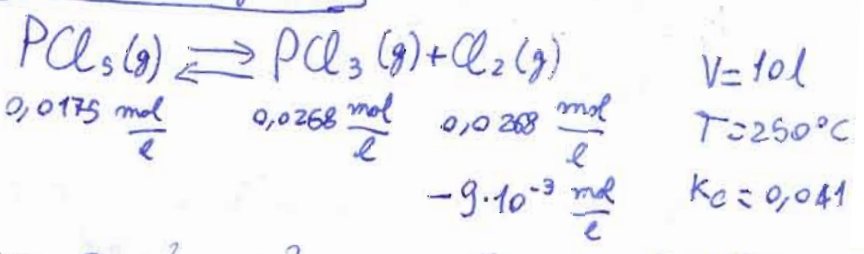 PCl₅(g) ⇌ PCl₃(g) + Cl₂(g) V=10l
0,0175 mol/l 0,0268 mol/l 0,0268 mol/l T=250°C
-9·10⁻³ mol/l Kc=0,041